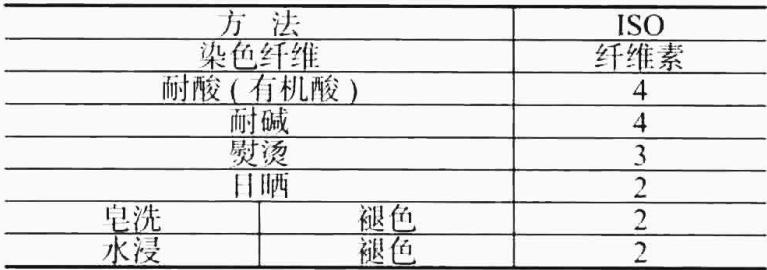 方法 ISO
染色纤维 纤维素
耐酸(有机酸) 4
耐碱 4
熨烫 3
日晒 2
皂洗 褪色 2
水浸 褪色 2